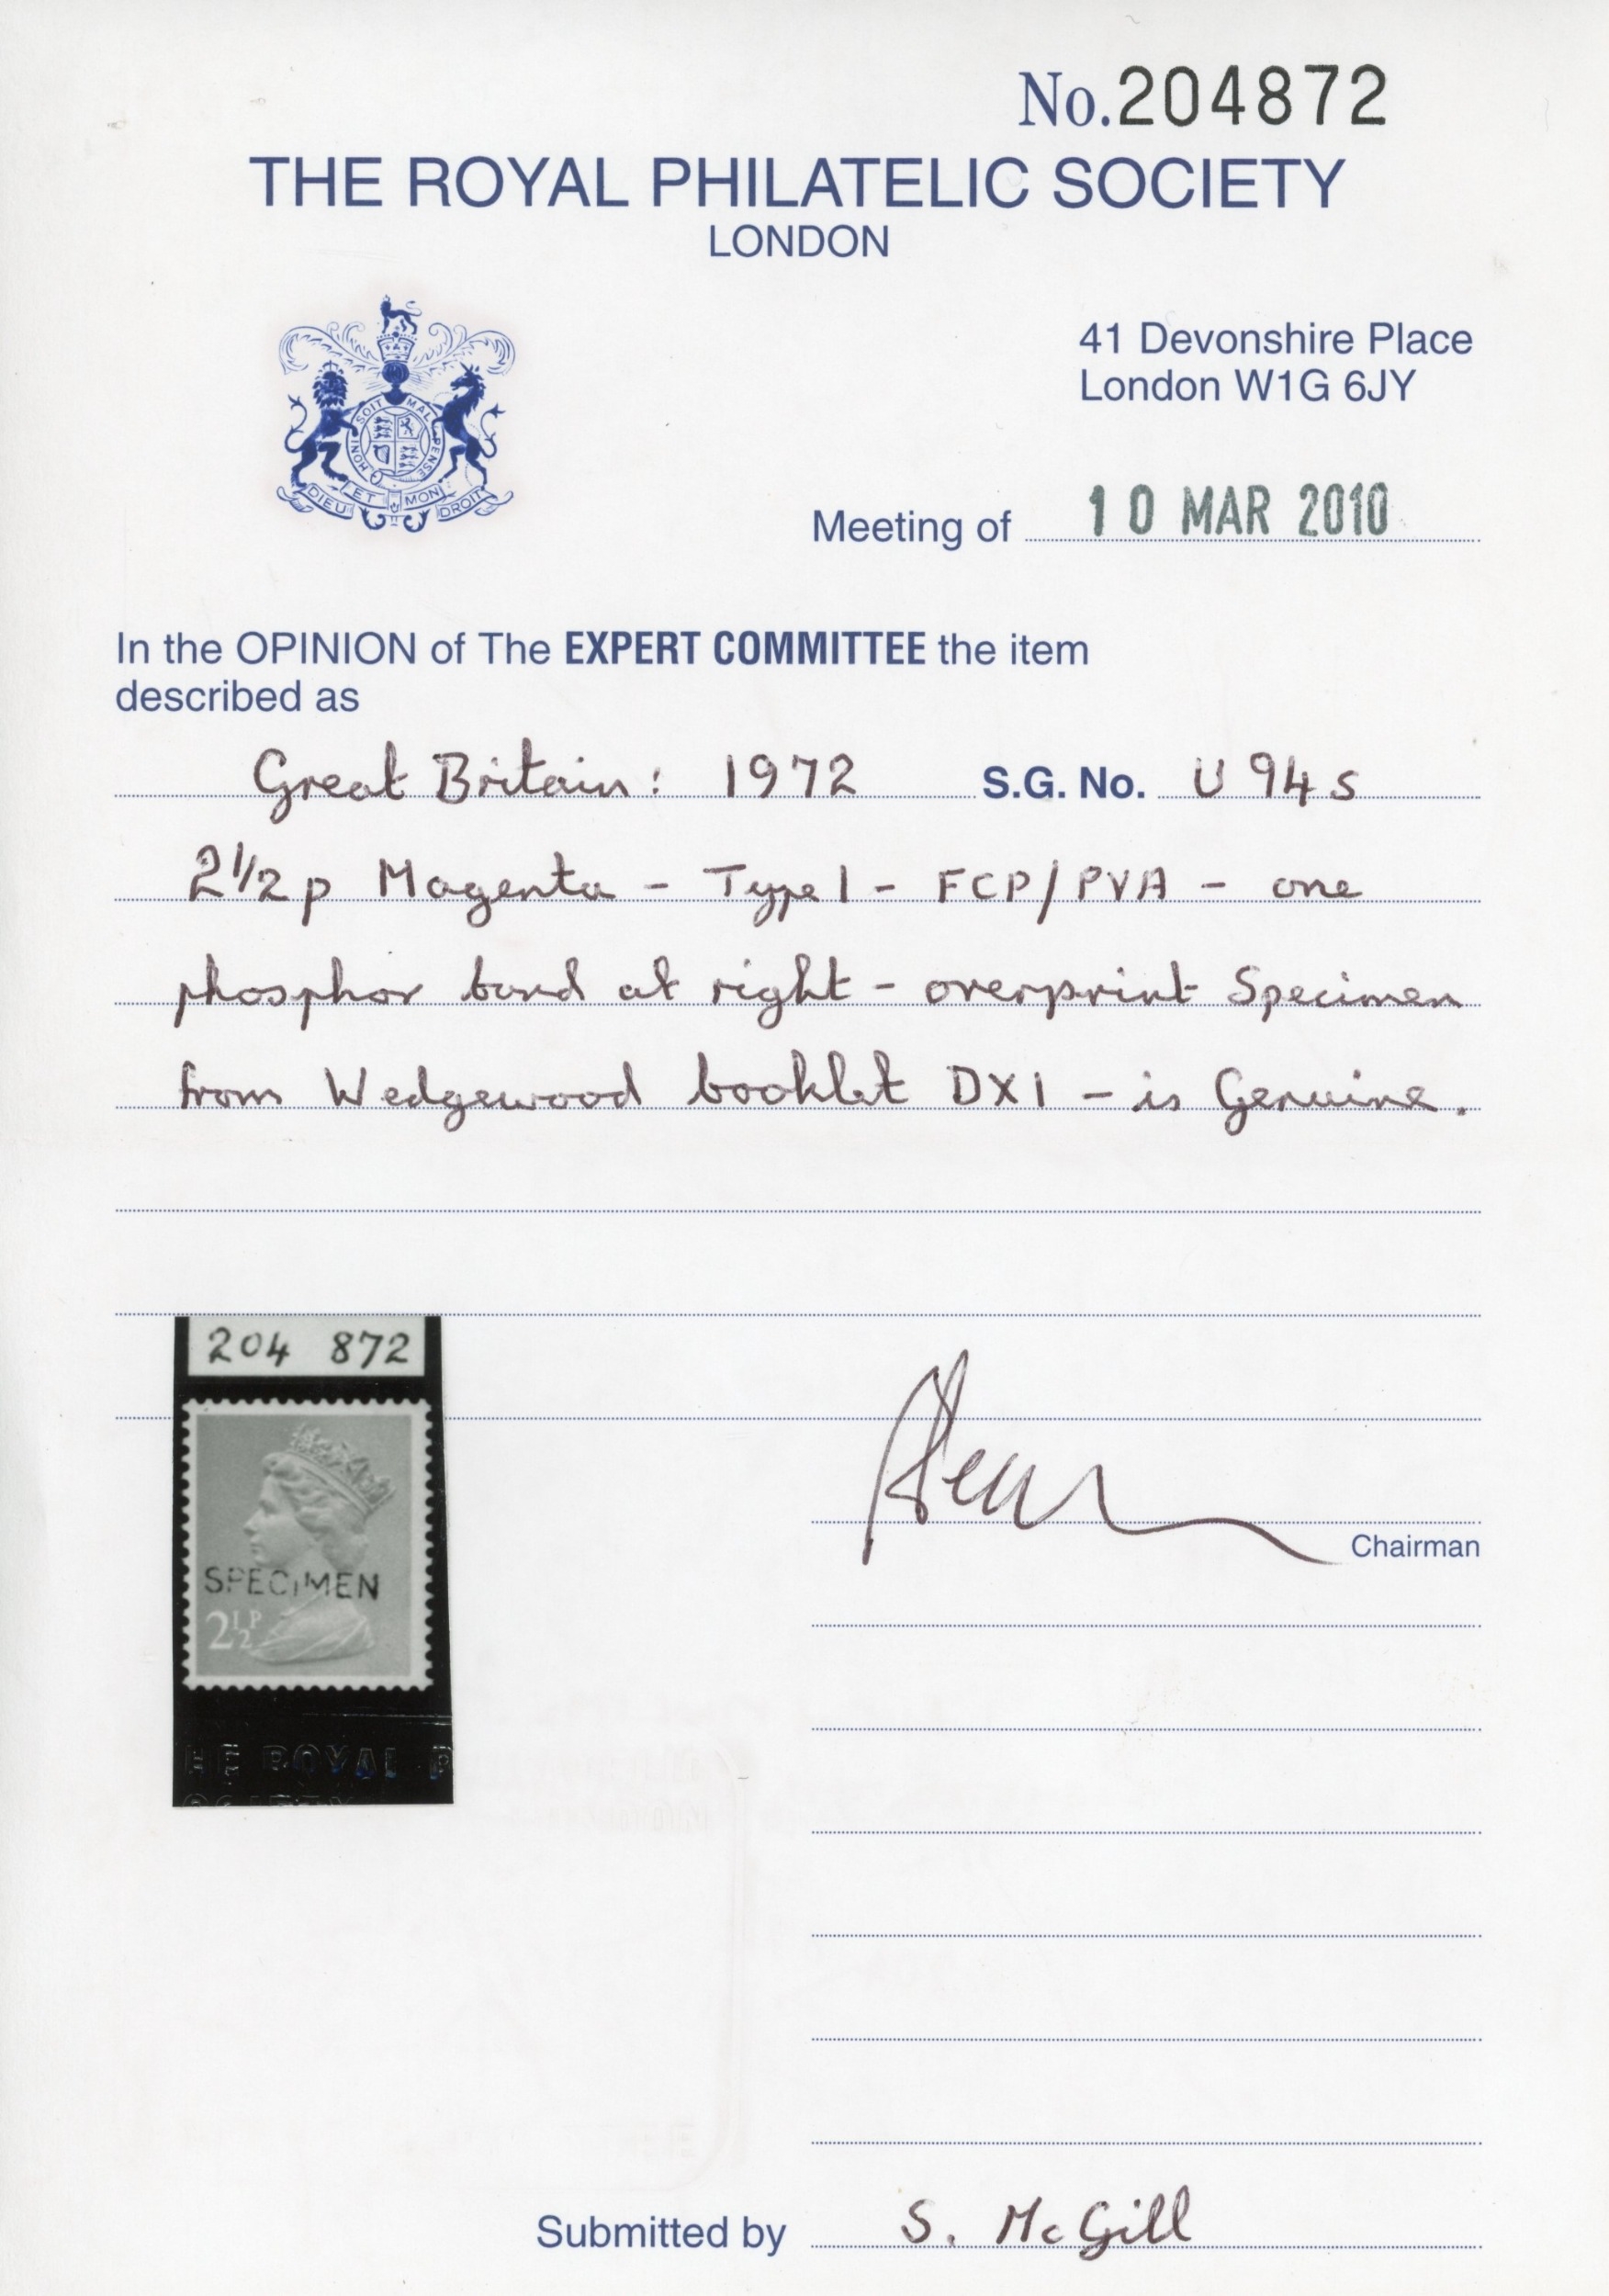 No.204872
THE ROYAL PHILATELIC SOCIETY
LONDON
41 Devonshire Place
London W1G 6JY
HONI SOIT MAL PENSE
DIEU ET MON DROIT
Meeting of 10 MAR 2010
In the OPINION of The EXPERT COMMITTEE the item
described as
Great Britain: 1972 S.G. No. U94s
2½p Magenta - Type 1 - FCP/PVA - one
phosphor band at right - overprint Specimen
from Wedgewood booklet DX1 - is Genuine.
204 872
SPECIMEN
2½P
HE ROYAL P
Chairman
Submitted by S. McGill